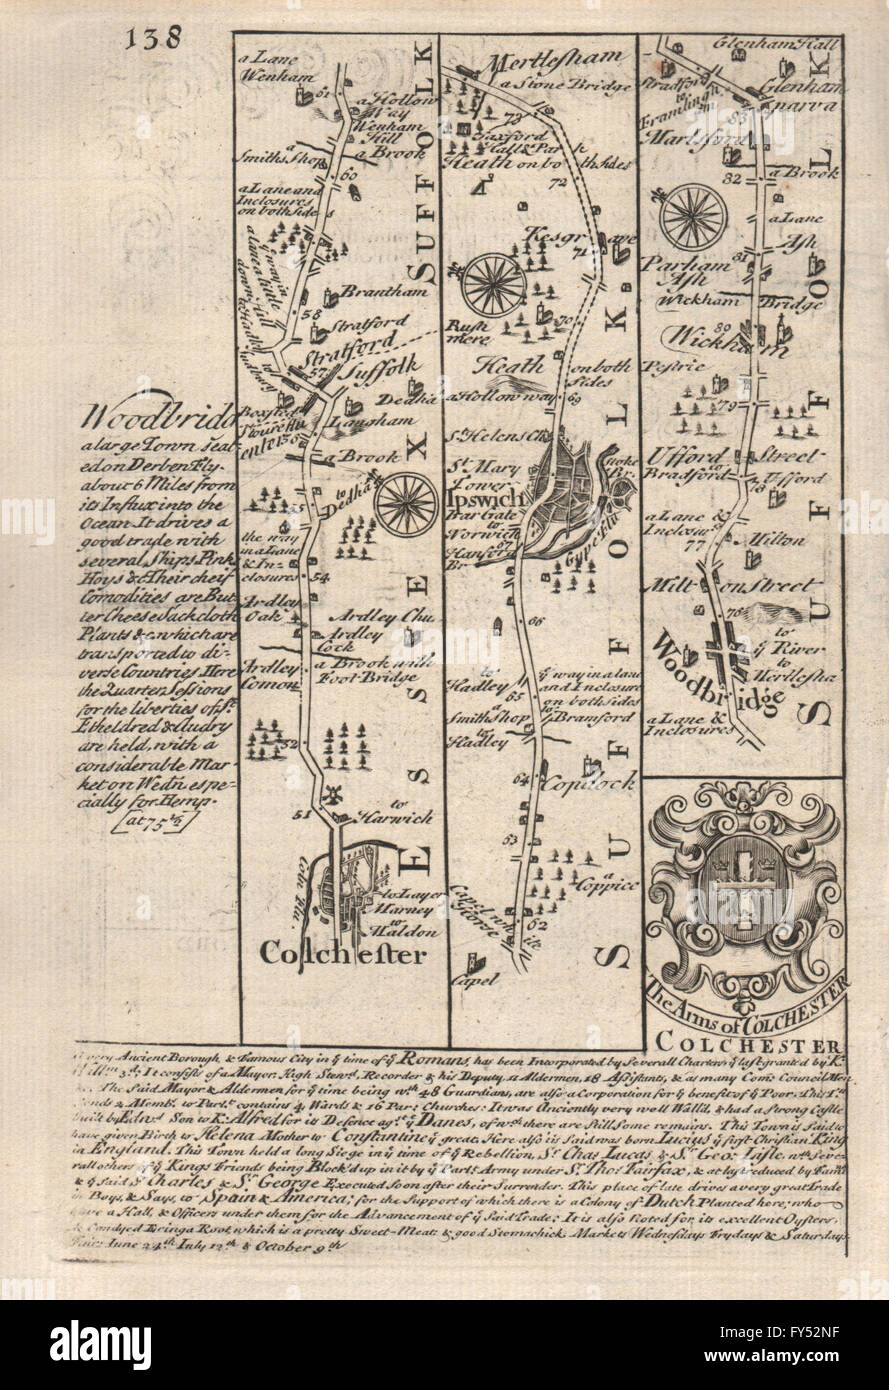 138
a Lane
Wenham
61
a Hollow
Way
Wenham
Hill
a
Smiths Shop
a Brook
60
a Lane and
Inclosures
on both sides
Brantham
58
Stratford
Stratford
57
Suffolk
Boxsted
Dedha
Langham
a Brook
to
Dedha
the way
in a Lane
& In-
closures
54
Ardley
Oak
Ardley Chu
Ardley
Cock
Ardley
Comon
a Brook with
Foot Bridge
52
51
to
Harwich
Coln Flu.
to Layer
Marney
to
Maldon
Colchester
ESSEX
SUFFOLK
Woodbridg
a large Town Seat
ed on Derben Flu.
about 6 Miles from
its Influx into the
Ocean. It drives a
good trade with
several Ships Pink
Hoys &c Their cheif
Comodities are But
ter Cheese Sackcloth
Plants &c. which are
transported to di-
verse Countries Here
the Quarter Sessions
for the liberties of St.
Etheldred & Audry
are held, with a
considerable Mar-
ket on Wedn. espe-
cially for Hemp.
[at 75 1/2]
Mertlesham
a Stone Bridge
73
Saxford
Hall & Park
Heath on both sides
72
Kesgrave
71
70
Rush
mere
Heath on both
Sides
a Hollow way
69
St. Helens Ch.
St. Mary
Tower
Stoke
Br.
Ipswich
Bar Gate
to
Norwich
Hanford
Br
Gype Flu
66
to
Hadley
65
ye way in a lane
and Inclosure
on both sides
a
Smiths Shop
to
Bramford
to
Hadley
64
Copdock
63
a
Coppice
62
Capel
SUFFOLK
Glenham Hall
Stradford
to
Framlingh
Glenham
parva
83
Marlsford
82
a Brook
a Lane
Ash
81
Parham
Ash
Wickham Bridge
80
Wickham
Pestrie
79
Ufford Street
to
Bradford
78
Ufford
a Lane &
Inclosur's
77
Milton
Milton Street
76
Woodbridge
to
ye River
to
Mertlesha
a Lane &
Inclosures
SUFFOLK
The Arms of COLCHESTER
COLCHESTER
A very Ancient Borough & Famous City in ye time of ye Romans, has been Incorporated by Severall Charters ye last granted by K.
Will.m 3d; It consists of a Mayor, High Stewd, Recorder & his Deputy, 11 Aldermen, 18 Assistants, & as many Com. Council Men
&c. The Said Mayor & Aldermen for ye time being wth 48 Guardians, are also a Corporation for ye benefit of ye Poor. This Tn
sends 2 Memb. to Parlt. contains 4 Wards & 16 Par: Churches: It was Anciently very well Wall'd, & had a Strong Castle
built by Edwd. Son to K. Alfred for its Defence agst. ye Danes, of wch there are Still some remains. This Town is Said to
have given Birth to Helena Mother to Constantine ye great. Here also is Said was born Lucius ye first Christian King
in England. This Town held a long Siege in ye time of ye Rebellion, Sr. Chas. Lucas & Sr. Geo: Lisle, wth Seve-
rall others of ye Kings Friends being Block'd up in it by ye Parlts Army under Sr. Thos. Fairfax, & at last reduced by Famin
& ye Said Sr. Charles & Sr. George Executed Soon after their Surrender. This place of late drives a very great Trade
in Boys, & Says, to Spain & America; for the Support of which there is a Colony of Dutch Planted here, who
have a Hall, & Officers under them for the Advancement of ye Said Trade; It is also Noted for its excellent Oysters,
& Candyed Eringa Root, which is a pretty Sweet-Meat & good Stomachick. Markets Wednesdays Frydays & Saturdays
Fairs June 24th July 12th & October 9th
alamy
Image ID: FY52NF
www.alamy.com